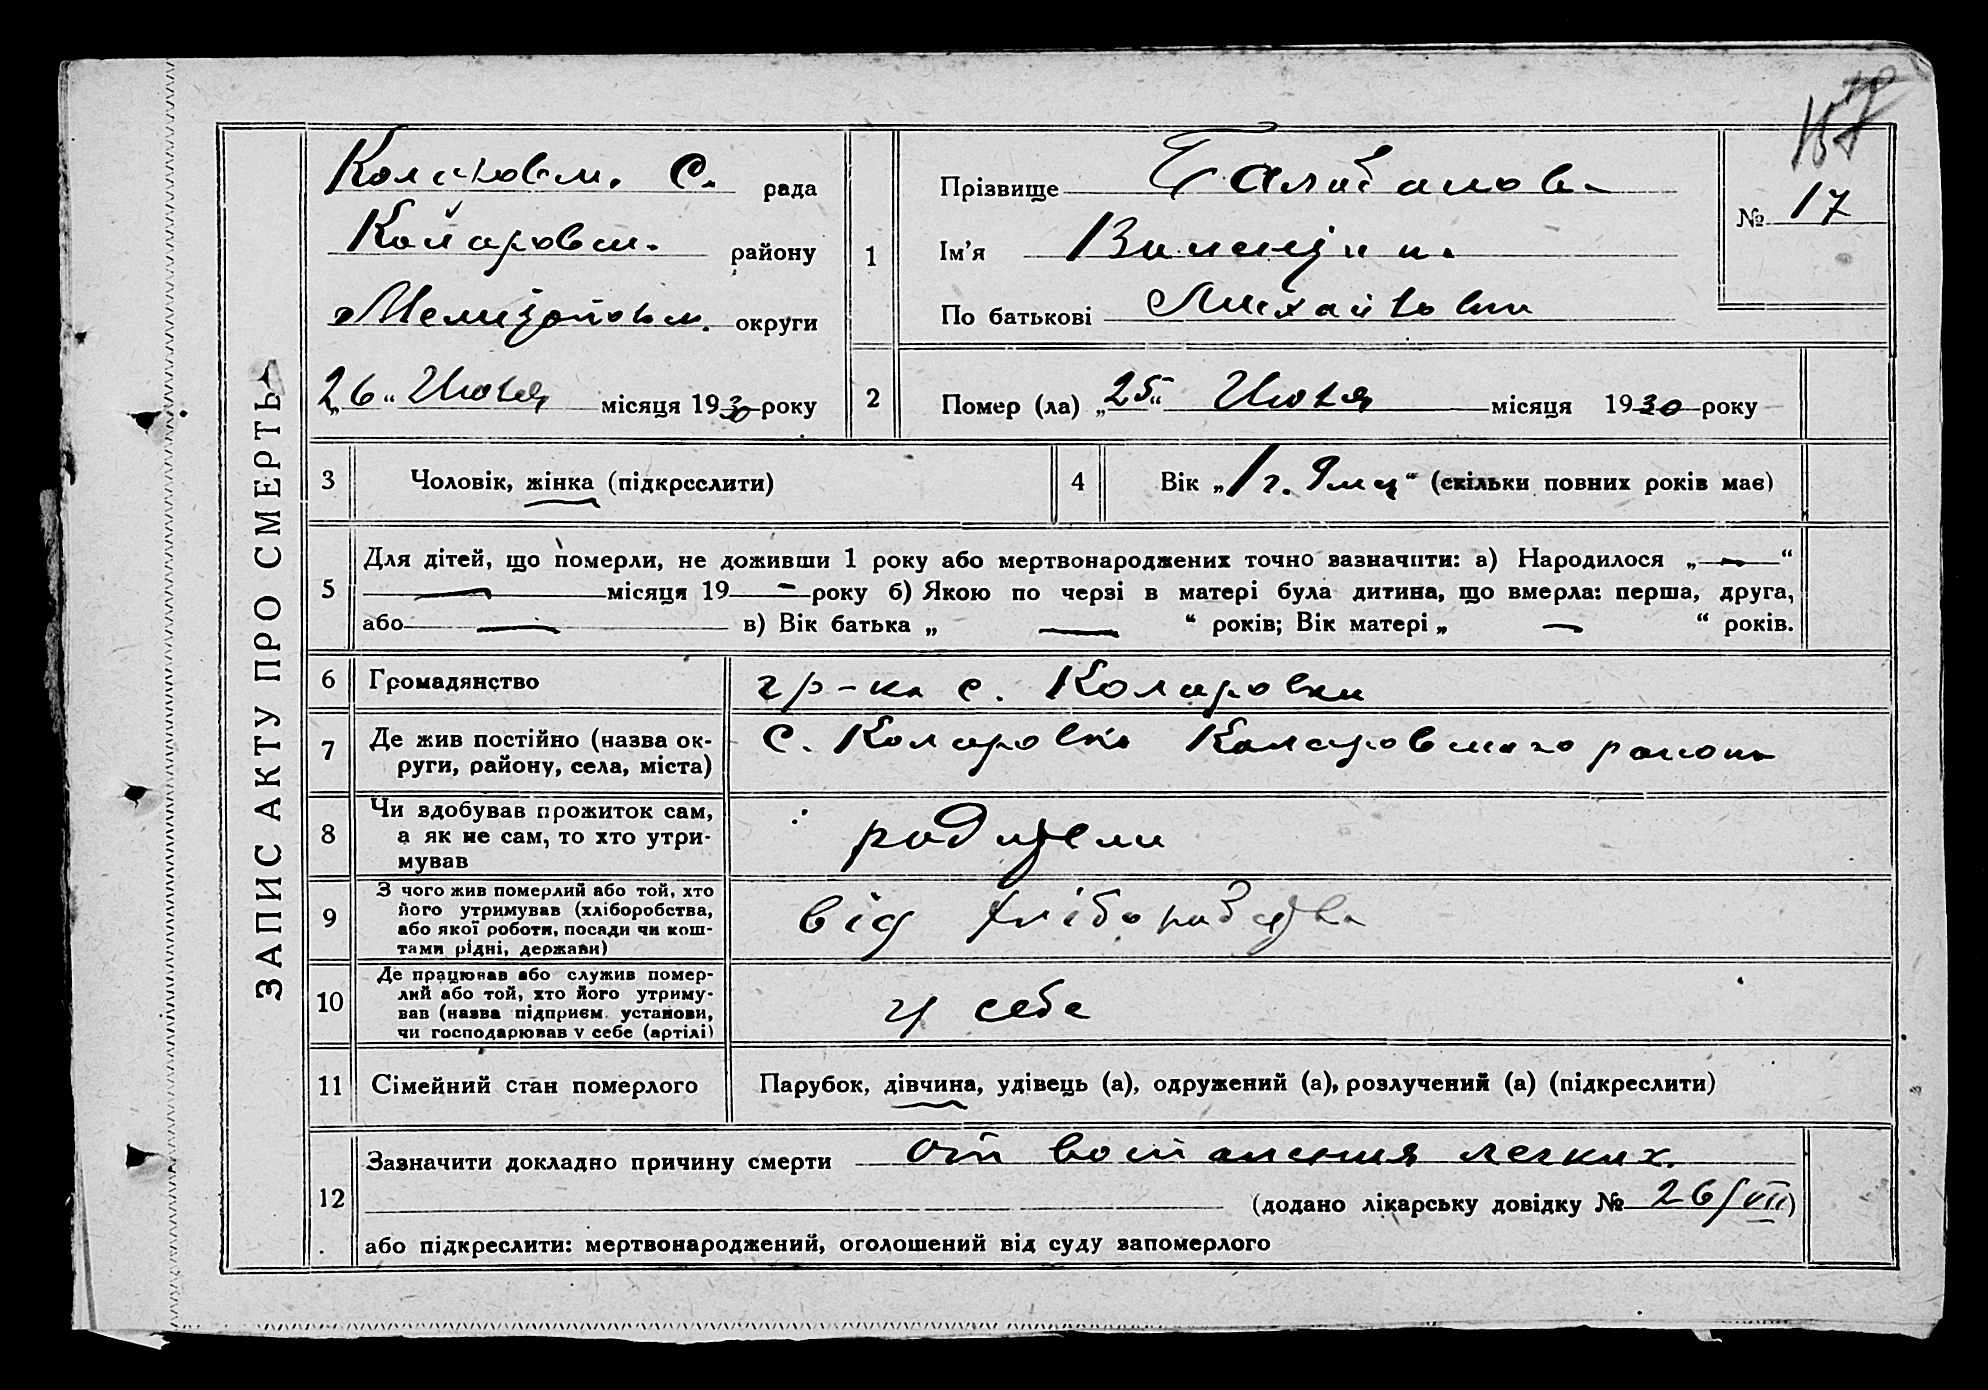 ЗАПИС АКТУ ПРО СМЕРТЬ
С. рада
району
округи
„26“ Июля місяця 1930 року
1
Прізвище
Ім’я
По батькові
№ 17
2
Помер (ла) „25“ Июля місяця 1930 року
3
Чоловік, жінка (підкреслити)
4
Вік „1 г. 9 мц“ (скільки повних років має)
5
Для дітей, що померли, не доживши 1 року або мертвонароджених точно зазначити: а) Народилося „—“
— місяця 19 — року б) Якою по черзі в матері була дитина, що вмерла: перша, друга,
або — в) Вік батька „ — “ років; Вік матері „ — “ років.
6
Громадянство
гр-ка с. Коларовки
7
Де жив постійно (назва ок-
руги, району, села, міста)
С. Коларовка Коларовского района
8
Чи здобував прожиток сам,
а як не сам, то хто утри-
мував
родители
9
З чого жив померлий або той, хто
його утримував (хліборобства,
або якої роботи, посади чи кош-
тами рідні, держави)
від хліборобства
10
Де працював або служив помер-
лий або той, хто його утриму-
вав (назва підприєм. установи,
чи господарював у себе (артілі)
у себе
11
Сімейний стан померлого
Парубок, дівчина, удівець (а), одружений (а), розлучений (а) (підкреслити)
12
Зазначити докладно причину смерти от воспаления легких.
(додано лікарську довідку № 26/VII)
або підкреслити: мертвонароджений, оголошений від суду запомерлого